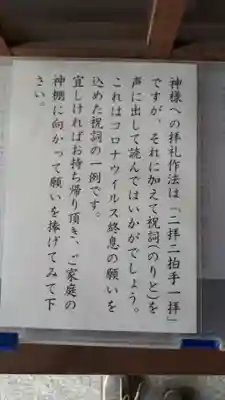 神様への拝礼作法は「二拝二拍手一拝」
ですが、それに加えて祝詞(のりと)を
声に出して読んではいかがでしょう。
これはコロナウイルス終息の願いを
込めた祝詞の一例です。
宜しければお持ち帰り頂き、ご家庭の
神棚に向かって願いを捧げてみて下
さい。